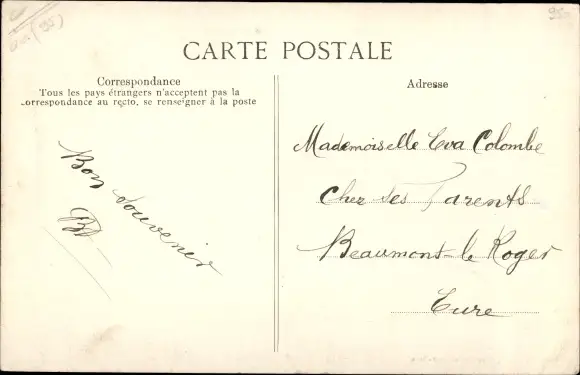 (95)
95
CARTE POSTALE
Correspondance
Tous les pays étrangers n'acceptent pas la
correspondance au recto, se renseigner à la poste
Adresse
Bon souvenir
Mademoiselle Eva Colombe
Chez ses Parents
Beaumont-le Roger
Eure